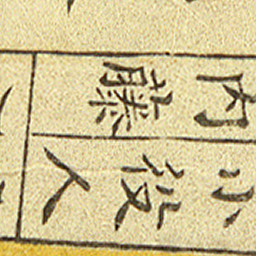 小役人
内藤